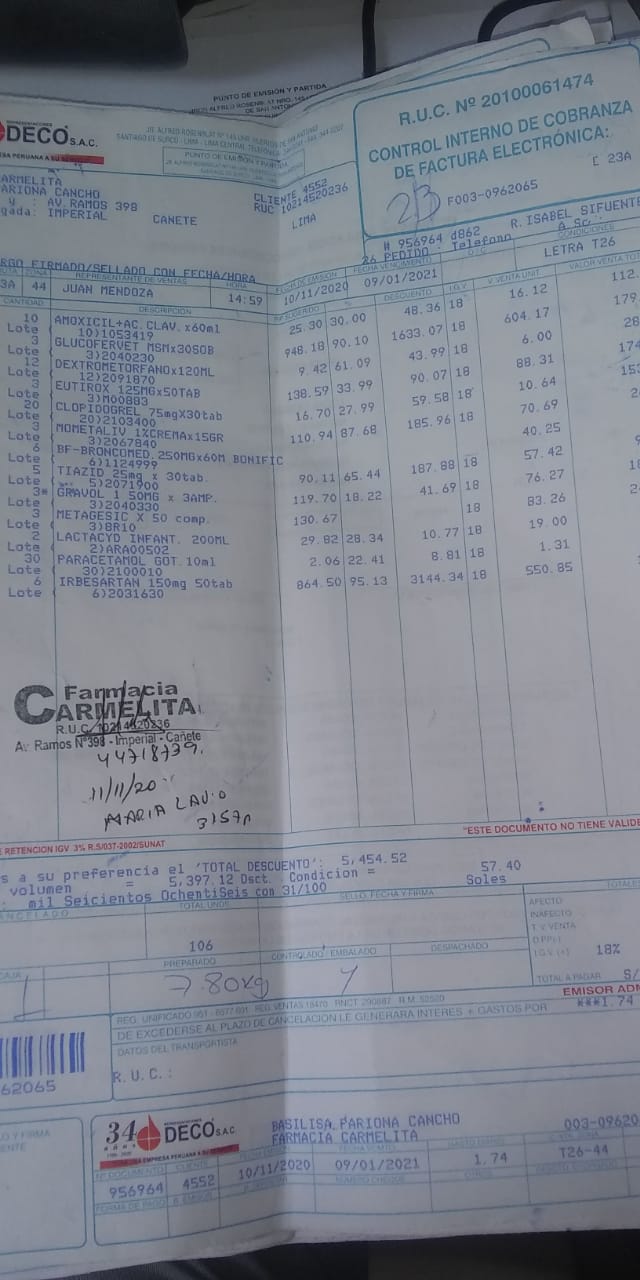 PUNTO DE EMISIÓN Y PARTIDA
DECO S.A.C.
PUNTO DE EMISIÓN Y PARTIDA
R.U.C. Nº 20100061474
CONTROL INTERNO DE COBRANZA
DE FACTURA ELECTRÓNICA:
F003-0962065
[ 23A
CARMELITA
PARIONA CANCHO
y : AV.RAMOS 398
IMPERIAL CANETE
CLIENTE 4552
RUC 10214520236
LIMA
# 956964 d862 R. ISABEL SIFUENTE
26 PEDIDO - Telefono A.Sc.
CONDICIONES
LETRA T26
FIRMADO/SELLADO CON FECHA/HORA
ZONA REPRESENTANTE DE VENTAS HORA FECHA DE EMISION FECHA VENCIMIENTO
3A 44 JUAN MENDOZA 14:59 10/11/2020 09/01/2021
CANTIDAD DESCRIPCIÓN DESCUENTO I.G.V. V.VENTA UNIT. VALOR VENTA
10 AMOXICIL+AC.CLAV.x60ml 25.30 30.00 48.36 18 16.12 112.
Lote 10)1053419
3 GLUCOFERVET MSMx30SOB 948.18 90.10 1633.07 18 604.17 179.
Lote 3)2040230
12 DEXTROMETORFANOx120ML 9.42 61.09 43.99 18 6.00 28
Lote 12)2091870
3 EUTIROX 125MGx50TAB 138.59 33.99 90.07 18 88.31 174
Lote 3)M00883
20 CLOPIDOGREL 75mgX30tab 16.70 27.99 59.58 18 10.64
Lote 20)2103400
3 MOMETALIV 1%CREMAx15GR 110.94 87.68 185.96 18 70.69
Lote 3)2067840
6 BF-BRONCOMED.250MGx60M BONIFIC 40.25
Lote 6)1124999
5 TIAZID 25mg x 30tab. 90.11 65.44 187.88 18 57.42
Lote 5)2071900
3* GRAVOL 1 50MG x 3AMP. 119.70 18.22 41.69 18 76.27
Lote 3)2040330
3 METAGESIC X 50 comp. 130.67 18 83.26
Lote 3)BR10
2 LACTACYD INFANT. 200ML 29.82 28.34 10.77 18 19.00
Lote 2)ARA00502
30 PARACETAMOL GOT.10ml 2.06 22.41 8.81 18 1.31
Lote 30)2100010
6 IRBESARTAN 150mg 50tab 864.50 95.13 3144.34 18 550.85
Lote 6)2031630
Farmacia
CARMELITA
R.U.C. 10214520236
Av. Ramos Nº 398 - Imperial - Cañete
44718739.
11/11/20
MARIA
RETENCION IGV 3% R.S/037-2002/SUNAT
"ESTE DOCUMENTO NO TIENE
s a su preferencia el 'TOTAL DESCUENTO': 5,454.52
volumen = 5,397.12 Dsct. Condicion = 57.40
mil Seicientos OchentiSeis con 31/100 Soles
TOTAL UNDS. SELLO, FECHA Y FIRMA
106
AFECTO
INAFECTO
T.V.VENTA
I.G.V. (+) 18%
TOTAL A PAGAR S/
CAJA PREPARADO CONTROLADO / EMBALADO DESPACHADO
7.80Kg
EMISOR
***1.74
DE EXCEDERSE AL PLAZO DE CANCELACION LE GENERARA INTERES + GASTOS POR
DATOS DEL TRANSPORTISTA
R.U.C.:
62065
34 DECO S.A.C.
BASILISA PARIONA CANCHO
FARMACIA CARMELITA
003-09620
Nº DOCUMENTO CLIENTE
956964 4552 10/11/2020 09/01/2021 1.74 T26-44
FORMA DE PAGO NUMERO CHEQUE